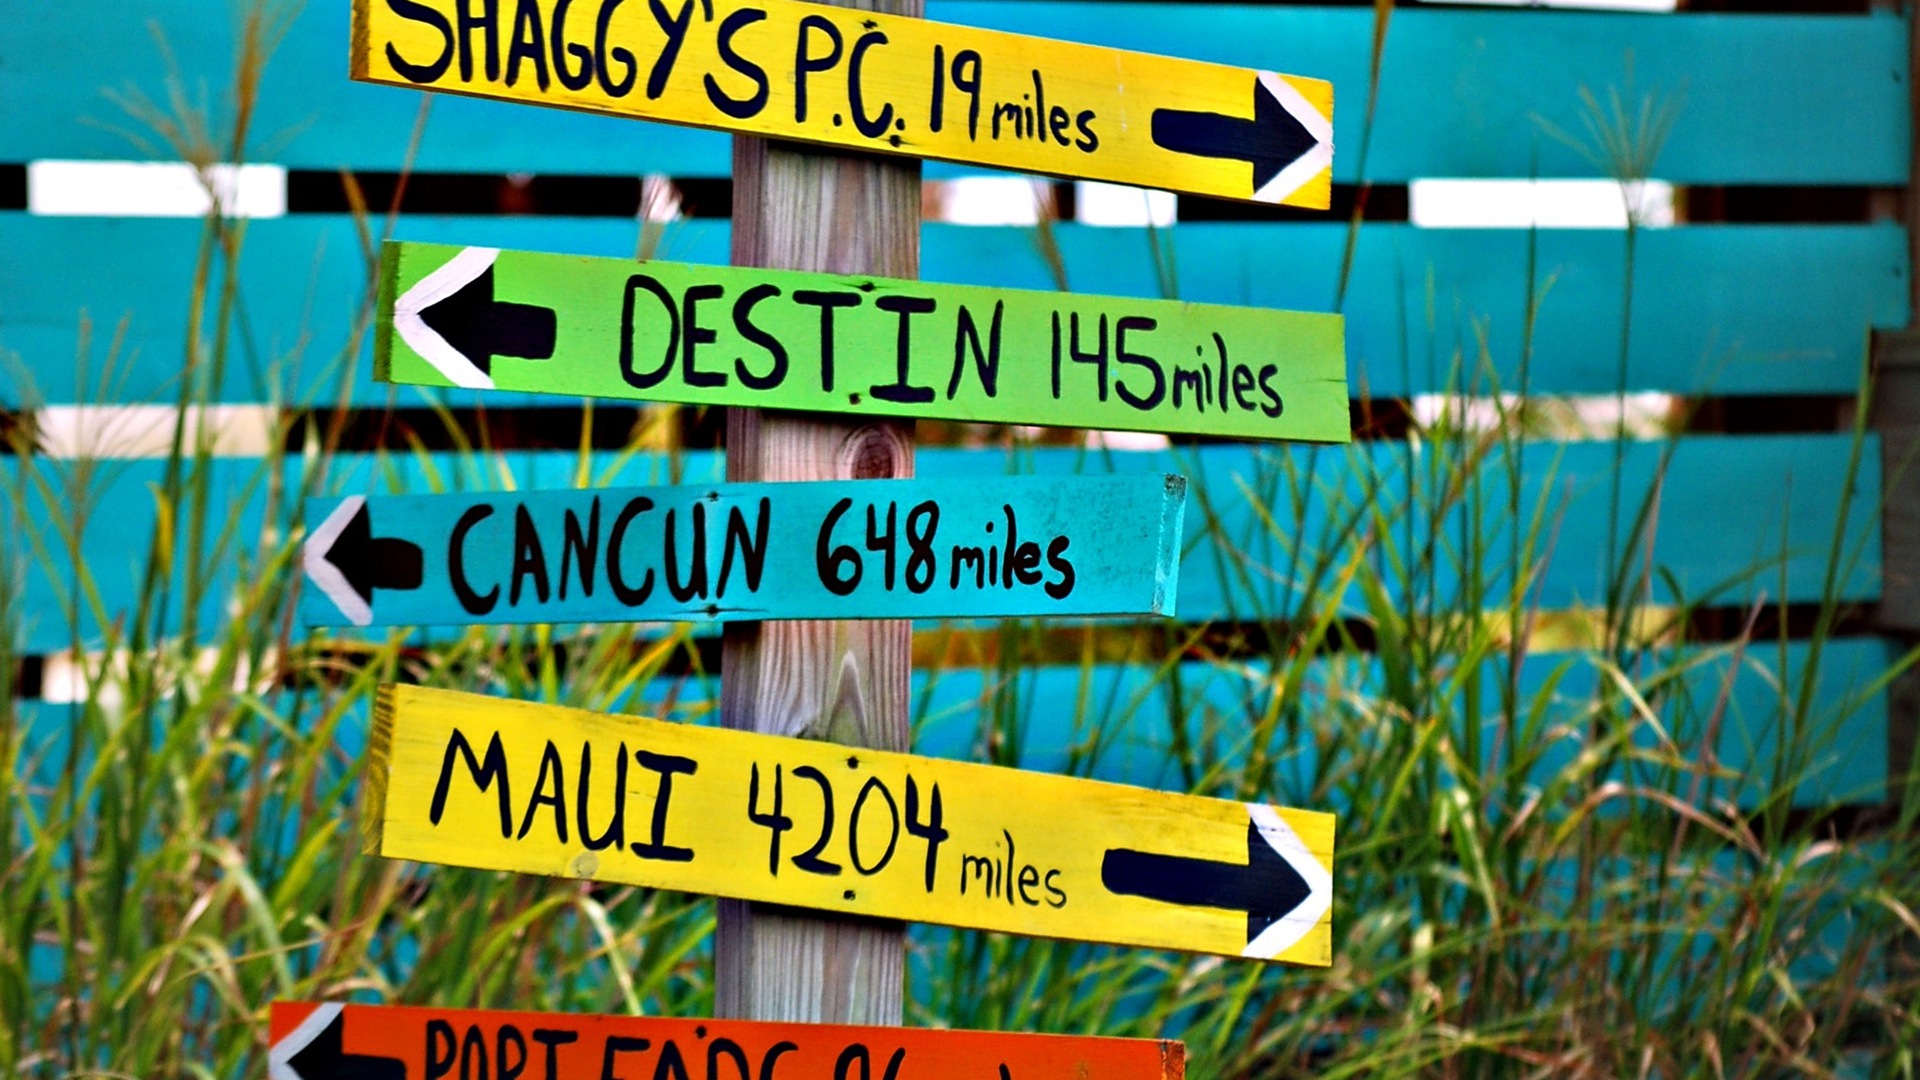 SHAGGY'S P.C. 19 miles
DESTIN 145 miles
CANCUN 648 miles
MAUI 4204 miles
PORT